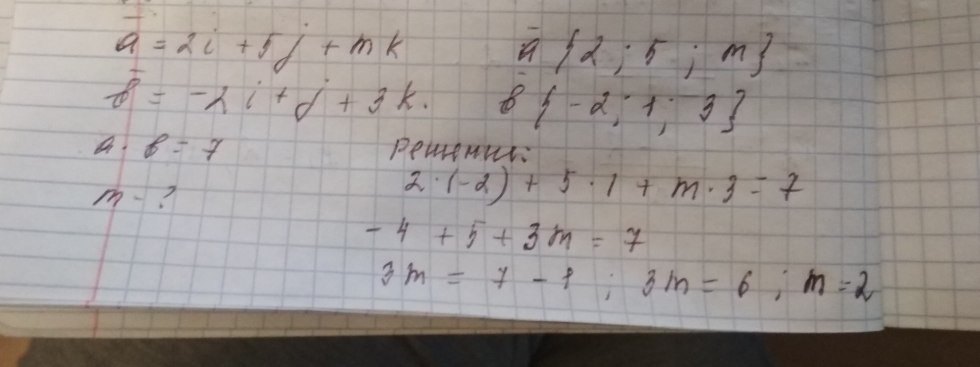 a̅ = 2i + 5j + mk a̅ {2; 5; m}
b̅ = -2i + j + 3k. b̅ {-2; 1; 3}
a · b = 7 Решение:
m - ? 2·(-2) + 5·1 + m·3 = 7
-4 + 5 + 3m = 7
3m = 7 - 1 ; 3m = 6 ; m = 2